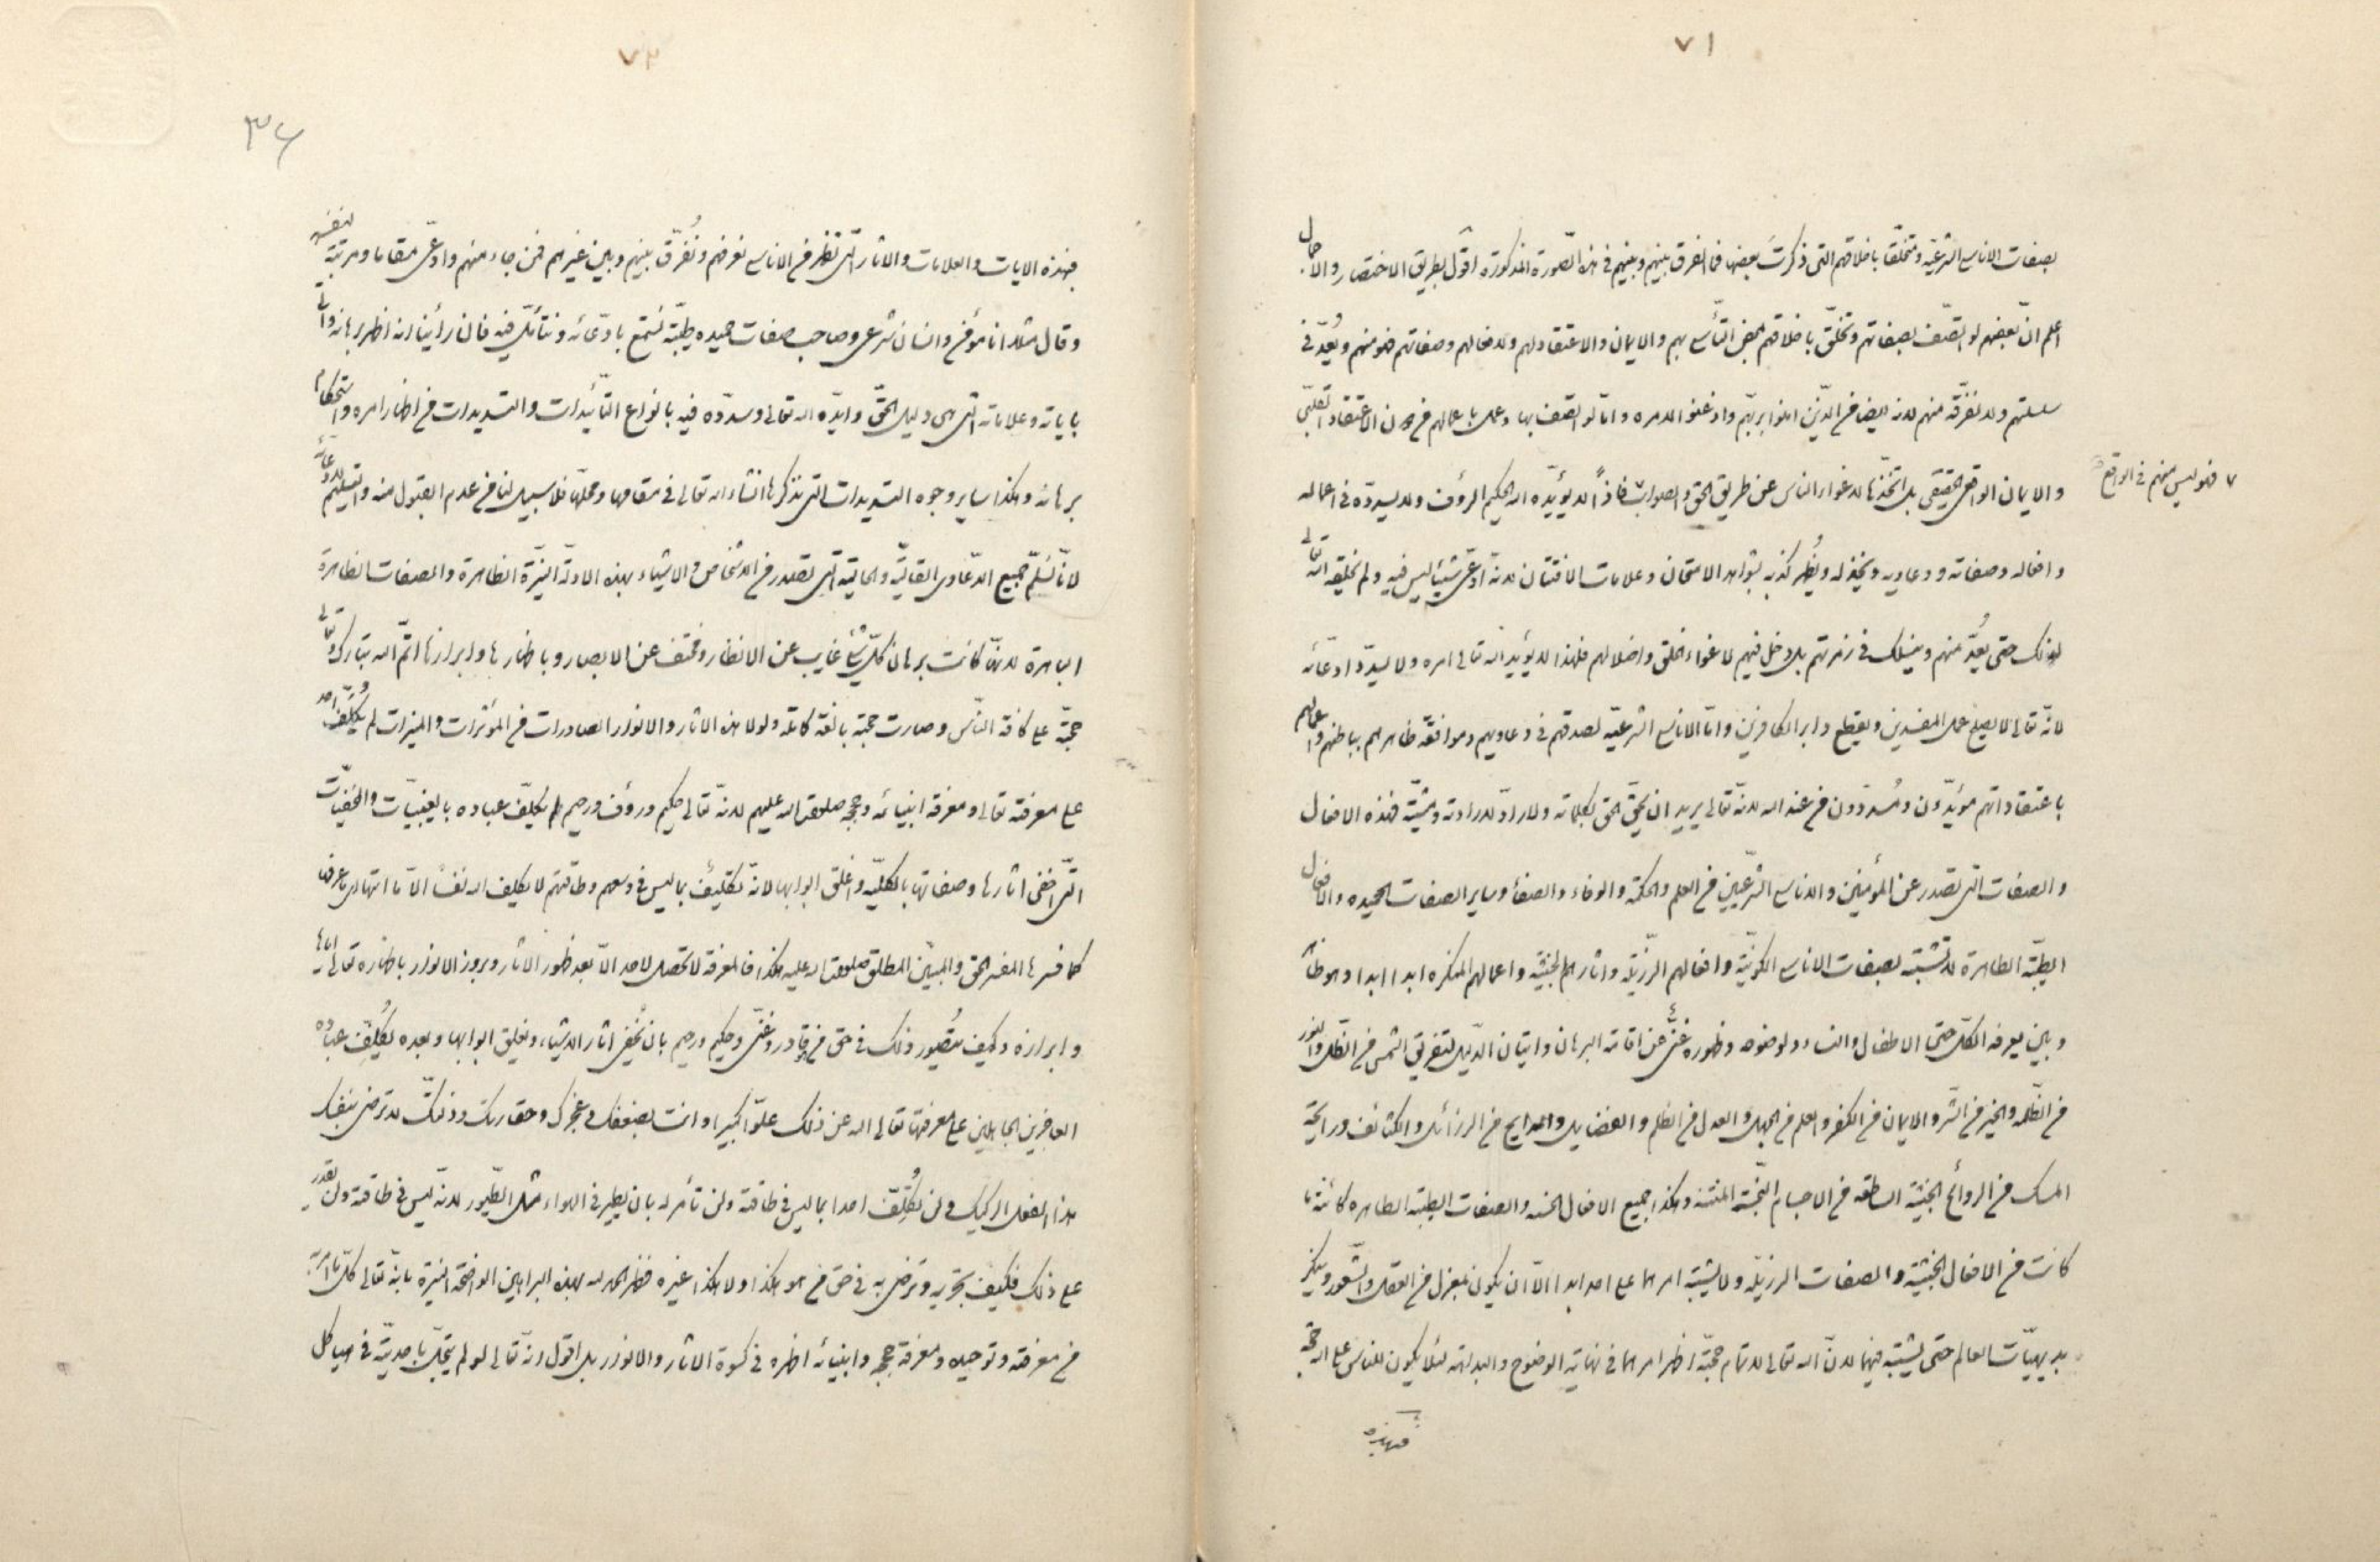 ٧١
بصفات الاناسی الشرعیّة و متخلّقا باخلاقهم التی ذکرتَ بعضها فما الفرق بینهم و بینهم فی هذه الصّورة المذکورة اقول بطریق الاختصار و الاجمال
اعلم انّ بعضهم لو اتّصف بصفاتهم و تخلّق باخلاقهم بمحض التأسّی بهم و الایمان و الاعتقاد لهم و لافعالهم و صفاتهم فهو منهم و یُعدّ فی
سلسلتهم و لا نفرّقه منهم لانه ایضا من الذّین امنوا بربّهم و اذعنوا لامره و امّا لو اتّصف بها و عمل باعمالهم من دون الاعتقاد القلبیّ
و الایمان الواقعیّ الحقیقی بل اتّخذها لاغواء الناس عن طریق الحق و الصواب ٧ فاذاً لا یؤیّده الله الحکیم الرؤف و لا یسدّده فی اعماله
٧ فهو لیس منهم فی الواقع
و افعاله و صفاته و دعاویه و یخذله و یُظهر کذبه بشواهد الامتحان و علامات الافتتان لانّه ادّعیٰ شیئا لیس فیه و لم یخلقه الله تعالی
لذلک حتی یُعدّ منهم و ینسلک فی زمرتهم بل دخل فیهم لاغواء الخلق و اضلالهم فلهذا لا یؤید الله تعالی امره و لا یسدّد ادّعائه
لانّه تعالی لا یصلح عمل المفسدین و یقطع دابر الکافرین و امّا الاناسی الشرعیّه لصدقهم فی دعاویهم و موافقة ظاهرهم بباطنهم و اعمالهم
باعتقاداتهم مؤیّدون و مُسدّدون من عند الله لانّه تعالی یرید ان یحقّ الحق بکلماته و لا رادّ لارادته و مشیّته فهذه الافعال
و الصفات التی تصدر عن المؤمنین و الاناسی الشرعیّین من العلم و الحکمة و الوفاء و الصفاء و سایر الصفات الحمیده و الافعال
الطیّبة الطاهرة لا تشتبه بصفات الاناسی الکونیّة و افعالهم الرّذیلة و اثارهم الخبیثة و اعمالهم المنکره ابدا ابدا و هو ظاهر
و بیّن یعرفه الکلّ حتی الاطفال و النساء و لوضوحه و ظهوره غنیّ عن اقامة البرهان و اتیان الدّلیل لتفریق الشمس من الظّل و النور
من الظّلمه و الخیر من الشّر و الایمان من الکفر و العلم من الجهل و العدل من الظلم و الفضایل و المدایح من الرذائل و الکثائف و رایحة
المسک من الروائح الخبیثة الساطعه من الاجسام النّجسة المنتنه و هکذا جمیع الافعال الحسنه و الصفات الطیبة الطاهره کائنة ما
کانت من الافعال الخبیثة و الصفات الرذیلة و لا یشتبه امرهما علی احد ابدا الّا ان یکون بمعزل من العقل و الشّعور و ینکر
بدیهیّات العالم حتی یشتبه فیهما لانّ الله تعالی لاتمام حجّته اظهر امرهما فی نهایة الوضوح و البداهة لئلا یکون للناس علی الله حجة
فهذه
٧٢
٣٦
فهذه الایات و العلامات و الاثار الّتی تظهر من الاناسی نعرفهم و نُفرّق بینهم و بین غیرهم فمن جاء منهم و ادّعیٰ مقاما و مرتبة لنفسه
و قال مثلا انا مؤمن و انسان شرعی و صاحب صفات حمیده طیّبة نستمع بادّعائه و نتأمّل فیه فان رأینا انه اظهر برهانه و اتیٰ
بایاته و علاماته الّتی هی دلیل الحقّ و ایّده الله تعالی و سدّده فیه بانواع التأییدات و التسدیدات من اظهار امره و استحکام
برهانه و هکذا سایر وجوه التسدیدات التی نذکرها انشاء الله تعالی فی مقامها و محلّها فلا سبیل لنا من عدم القبول منه و التسلیم لادّعائه
لانّا نسلّم جمیع الدّعاوی القالیّة و الحالیّة التی تصدر من الاشخاص و الاشیاء بهذه الادلّة النیّرة الظاهرة و الصفات الظاهرة
الباهرة لانّها کانت برهان کلّ شئ غایب عن الانظار و مختف عن الابصار و باظهارها و ابرازها اتمّ الله تبارک و تعالی
حجّته علی کافة النّاس و صارت حجة بالغة کاملة و لولا هذه الاثار و الانوار الصادرات من المؤثرات و المنیرات لم یُکلّف احد
علی معرفته تعالی و معرفة انبیائه و حججه صلوات الله علیهم لانّه تعالی حکیم و رؤف و رحیم لم یکلّف عباده بالغیبیّات و الخفیّات
الّتی اخفی اثارها و صفاتها بالکلیّه و اغلق ابوابها لانّه تکلیف بما لیس فی وسعهم و طاقتهم لا یکلف الله نفسا الّا ما اتیها ای ما عرفها
کما فسرها المفسر الحق و المبیّن المطلق صلوات الله علیه هکذا فالمعرفة لا تحصل لاحد الّا بعد ظهور الاثار و بروز الانوار باظهاره تعالی ایاها
و ابرازه و کیف یتصُوّر ذلک فی حق من قادر و غنیّ و حکیم و رحیم بان یُخفی اثار الاشیاء و یغلق ابوابها و بعده یُکلّف عباده
العاجزین الجاهلین علی معرفتها تعالی الله عن ذلک علوّا کبیرا و انت بضعفک و عجزک و حقارتک و ذلّتک لا ترضی بنفسک
هذا الفعل الرکیک و لن تُکلّف احدا بما لیس فی طاقته و لن تأمر له بان یطیر فی الهواء مثل الطّیور لانه لیس فی طاقته و لن یقدر
علی ذلک فکیف تجریه و ترضی به فی حق من هو هکذا و لا هکذا غیره فظهر الحمد لله بهذه البراهین الواضحة النیّرة بانه تعالی کلّ ما امر به
من معرفته و توحیده و معرفة حججه و انبیائه اظهره فی کسوة الاثار و الانوار بل اقول انّه تعالی لو لم یتجلّ باحدیّته فی هیاکل